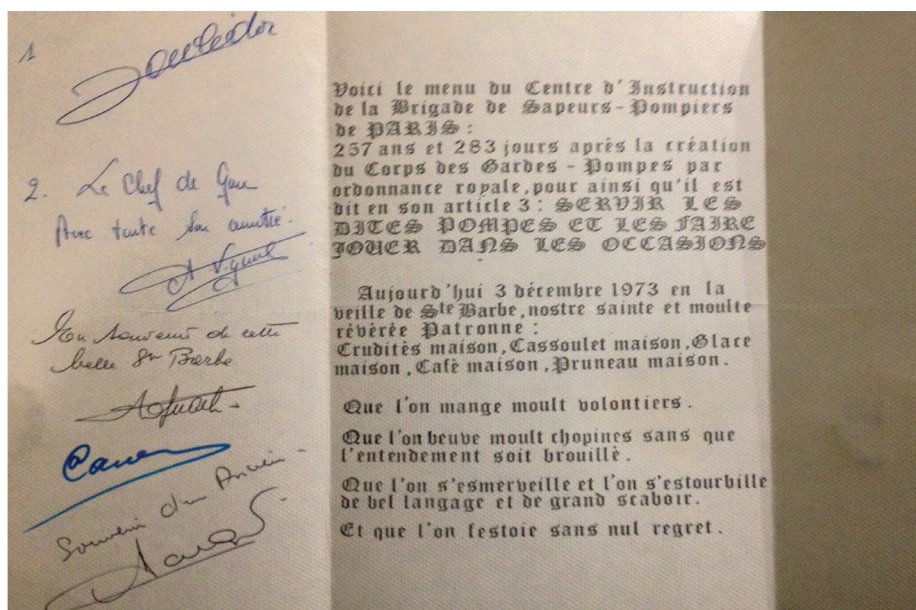 1
2. Le Chef de Gare
Avec toute son amitié.
En souvenir de cette
belle Ste Barbe
Souvenir d'un Ancien
Voici le menu du Centre d'Instruction
de la Brigade de Sapeurs-Pompiers
de PARIS :
257 ans et 283 jours après la création
du Corps des Gardes - Pompes par
ordonnance royale, pour ainsi qu'il est
dit en son article 3 : SERVIR LES
DITES POMPES ET LES FAIRE
JOUER DANS LES OCCASIONS
Aujourd'hui 3 décembre 1973 en la
veille de Ste Barbe, nostre sainte et moulte
révérée Patronne :
Crudités maison, Cassoulet maison, Glace
maison, Café maison, Pruneau maison.
Que l'on mange moult volontiers.
Que l'on beuve moult chopines sans que
l'entendement soit brouillé.
Que l'on s'esmerveille et l'on s'estourbille
de bel langage et de grand scavoir.
Et que l'on festoie sans nul regret.